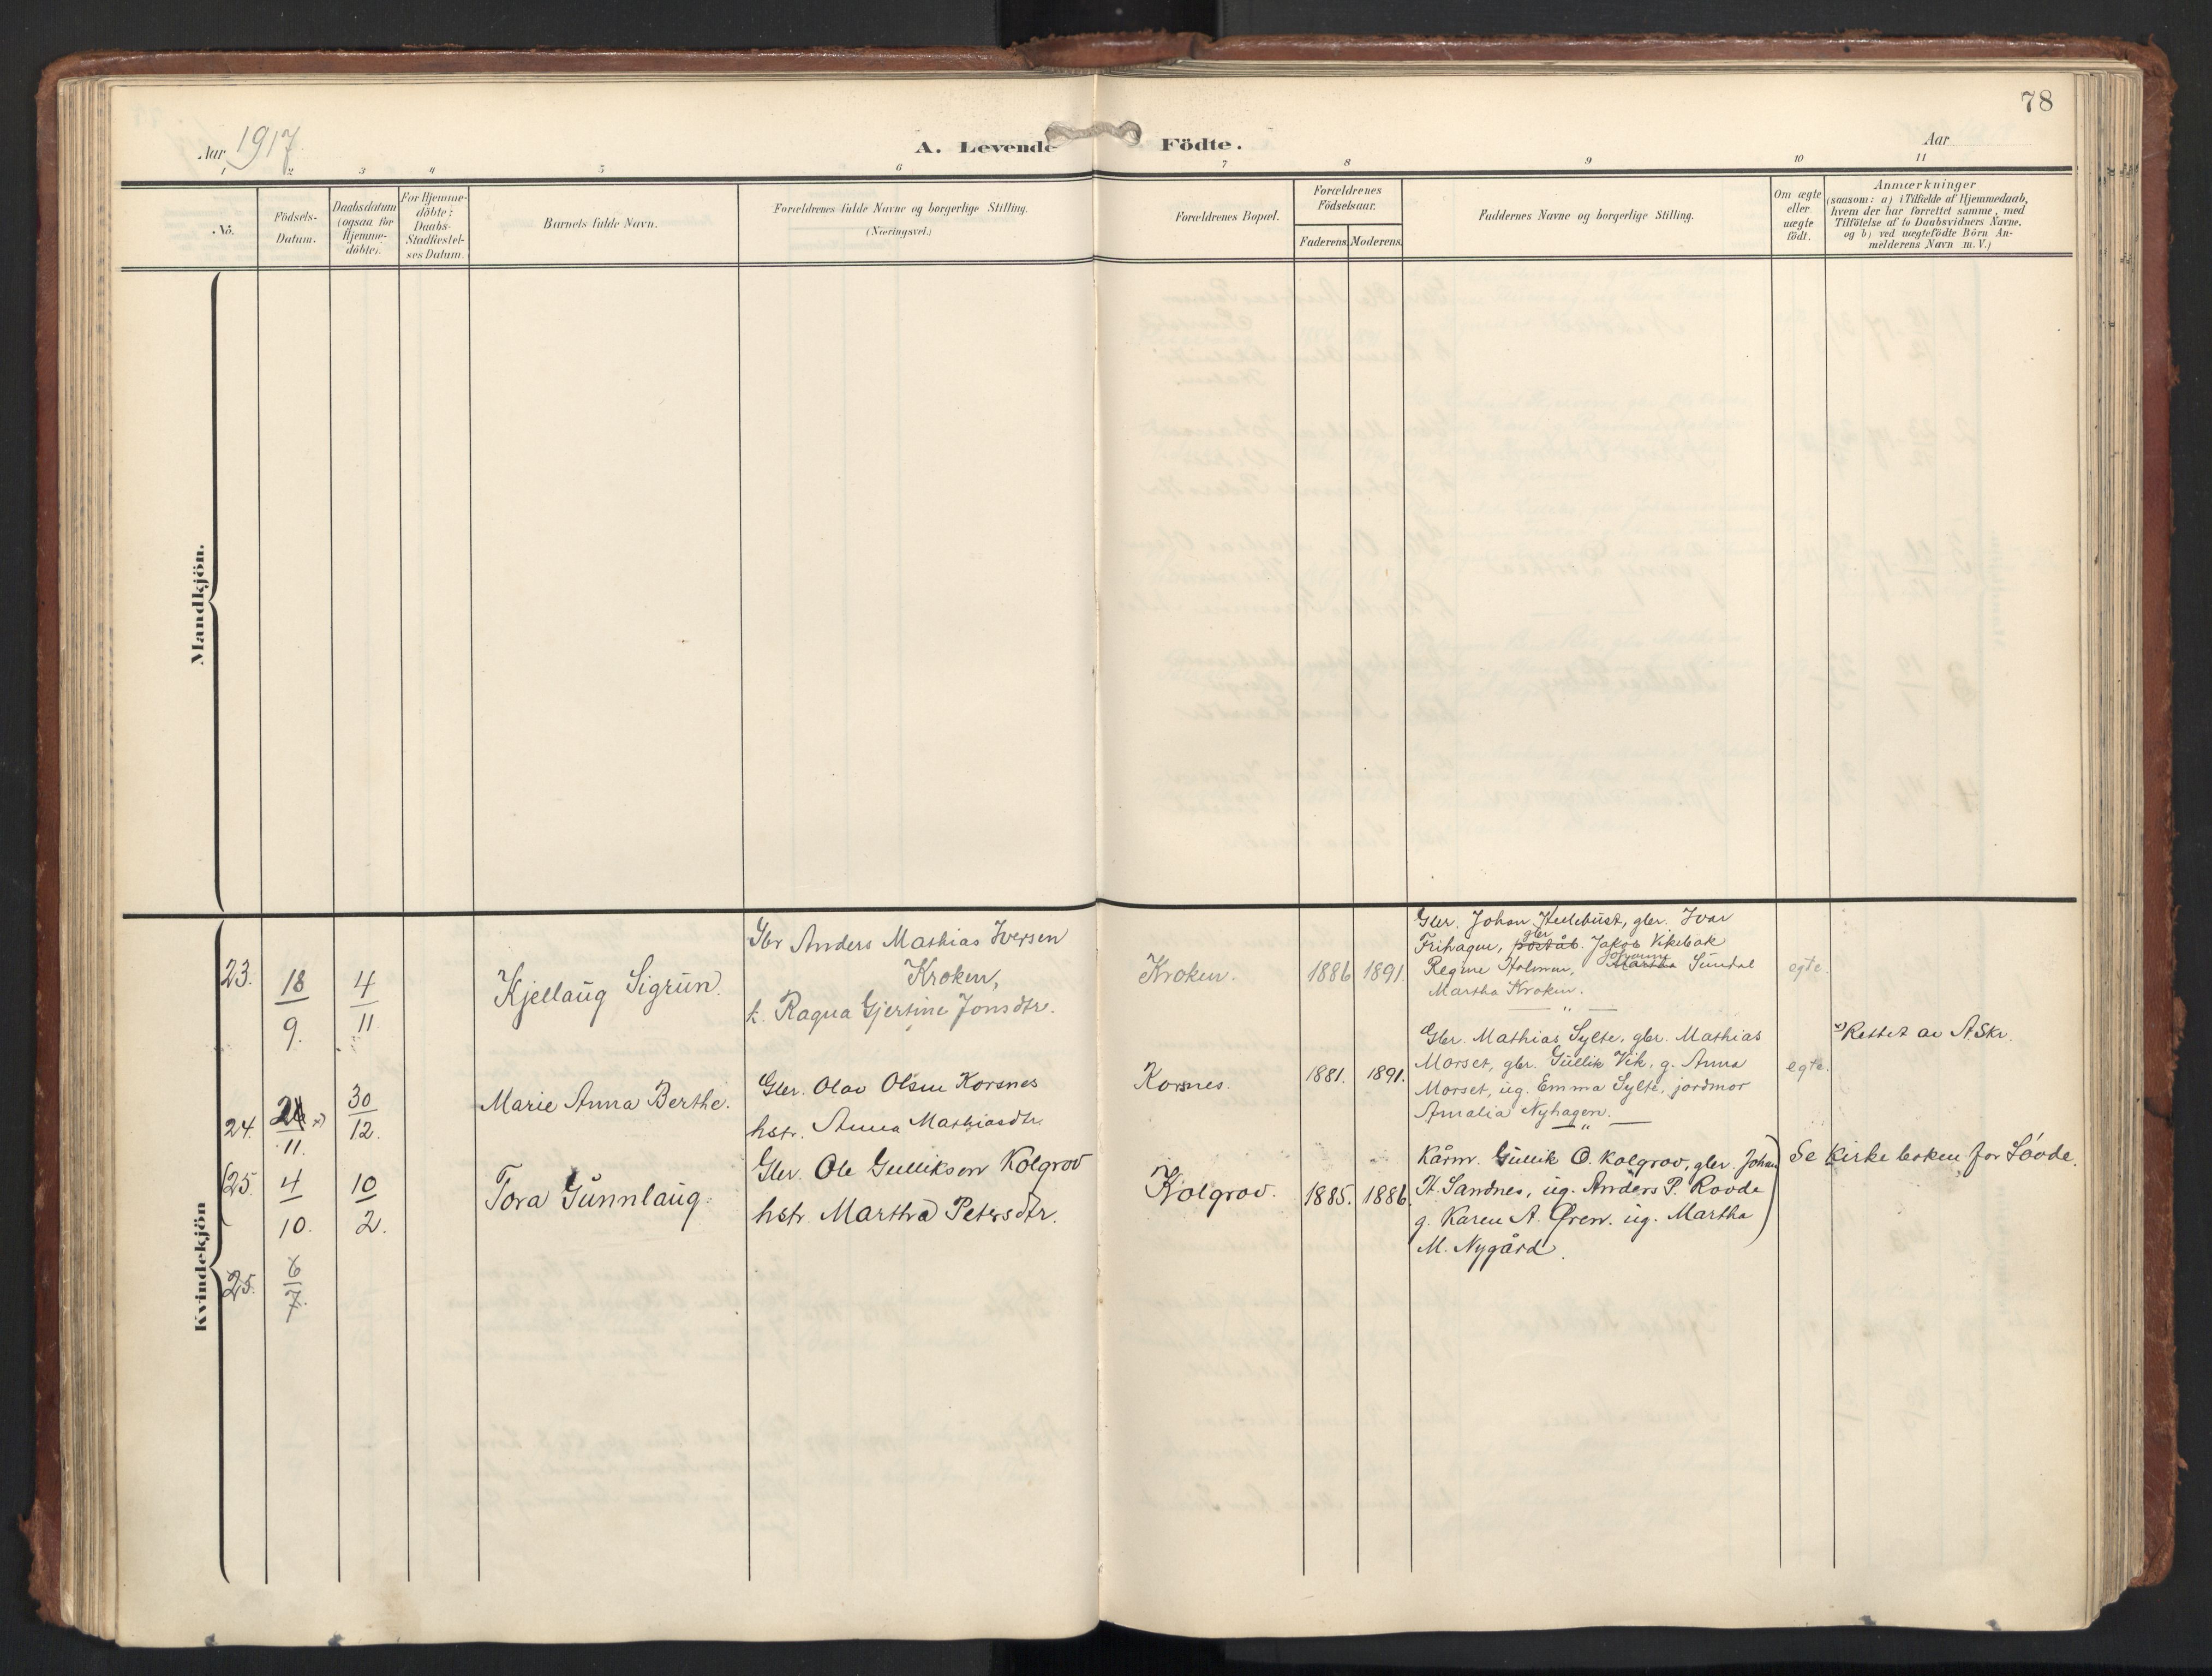 78
Aar 1917
A. Levende Födte.
Aar
1 2 3 4 5 6 7 8 9 10 11
No.
Födsels-
Datum.
Daabsdatum
(ogsaa for
Hjemme-
döbte).
For Hjemme-
döbte:
Daabs-
Stadfæstel-
ses Datum.
Barnets fulde Navn.
Forældrenes fulde Navne og borgerlige Stilling.
(Næringsvei.)
Forældrenes Bopæl.
Forældrenes
Födselsaar.
Faderens. Moderens.
Faddernes Navne og borgerlige Stilling.
Om ægte
eller
uægte
födt.
Anmærkninger
(saasom: a) i Tilfælde af Hjemmedaab,
hvem der har forrettet samme, med
Tilföielse af to Daabsvidners Navne.
og b) ved uægtefödte Börn An-
melderens Navn m. V.)
Mandkjön.
Kvindekjön
23.
18
9.
4
11
Kjellaug Sigrun.
Gbr Anders Mathias Iversen
Kroken,
k. Ragna Gjertine Jonsdtr.
Kroken.
1886 1891.
Gbr. Johan Hellebust, gbr. Ivar
Frihagen, poståb. gbr Jakob Vikebak
Regine Holmen, Martha Johanne Sundal
Martha Kroken.
— " —
egte.
24.
24 x)
11.
30
12.
Marie Anna Berthe.
Gbr. Olav Olsen Korsnes
hstr. Anna Mathiasdtr.
Korsnes.
1881. 1891.
Gbr. Mathias Sylte, gbr. Mathias
Morset, gbr. Gullik Vik, g. Anna
Morset, ug. Emma Sylte, jordmor
Amalia Nyhagen.
— " —
egte.
x) Rettet av A.Skr.
(25.
4
10.
10
2.
Tora Gunnlaug.
Gbr. Ole Gulliksen Kolgrov
hstr. Martha Petersdtr.
Kolgrov.
1885. 1886.
Kårm. Gullik O. Kolgrov, gbr. Johan
H. Sandnes, ug. Anders P. Rovde
g. Karen A. Øren. ug. Martha
M. Nygård.
)
Se Kirkeboken for Søvde.
25.
6
7.